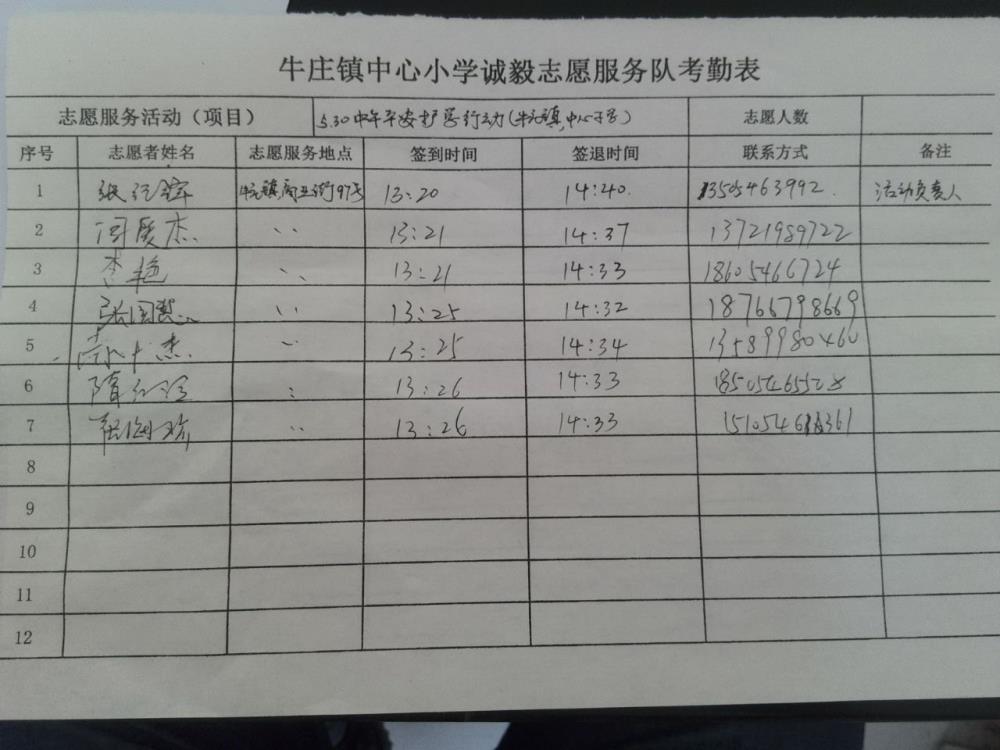 牛庄镇中心小学诚毅志愿服务队考勤表
志愿服务活动（项目） 5.30中午平安护学行动(牛庄镇中心小学) 志愿人数
序号 志愿者姓名 志愿服务地点 签到时间 签退时间 联系方式 备注
1 牛庄镇商业街97号 13:20 14:40 13505463992 活动负责人
2 〃 13:21 14:37 13721989722
3 李艳 〃 13:21 14:33 18605466724
4 张国慧 〃 13:25 14:32 18766798669
5 〃 13:25 14:34 13589980460
6 〃 13:26 14:33
7 〃 13:26 14:33
8
9
10
11
12